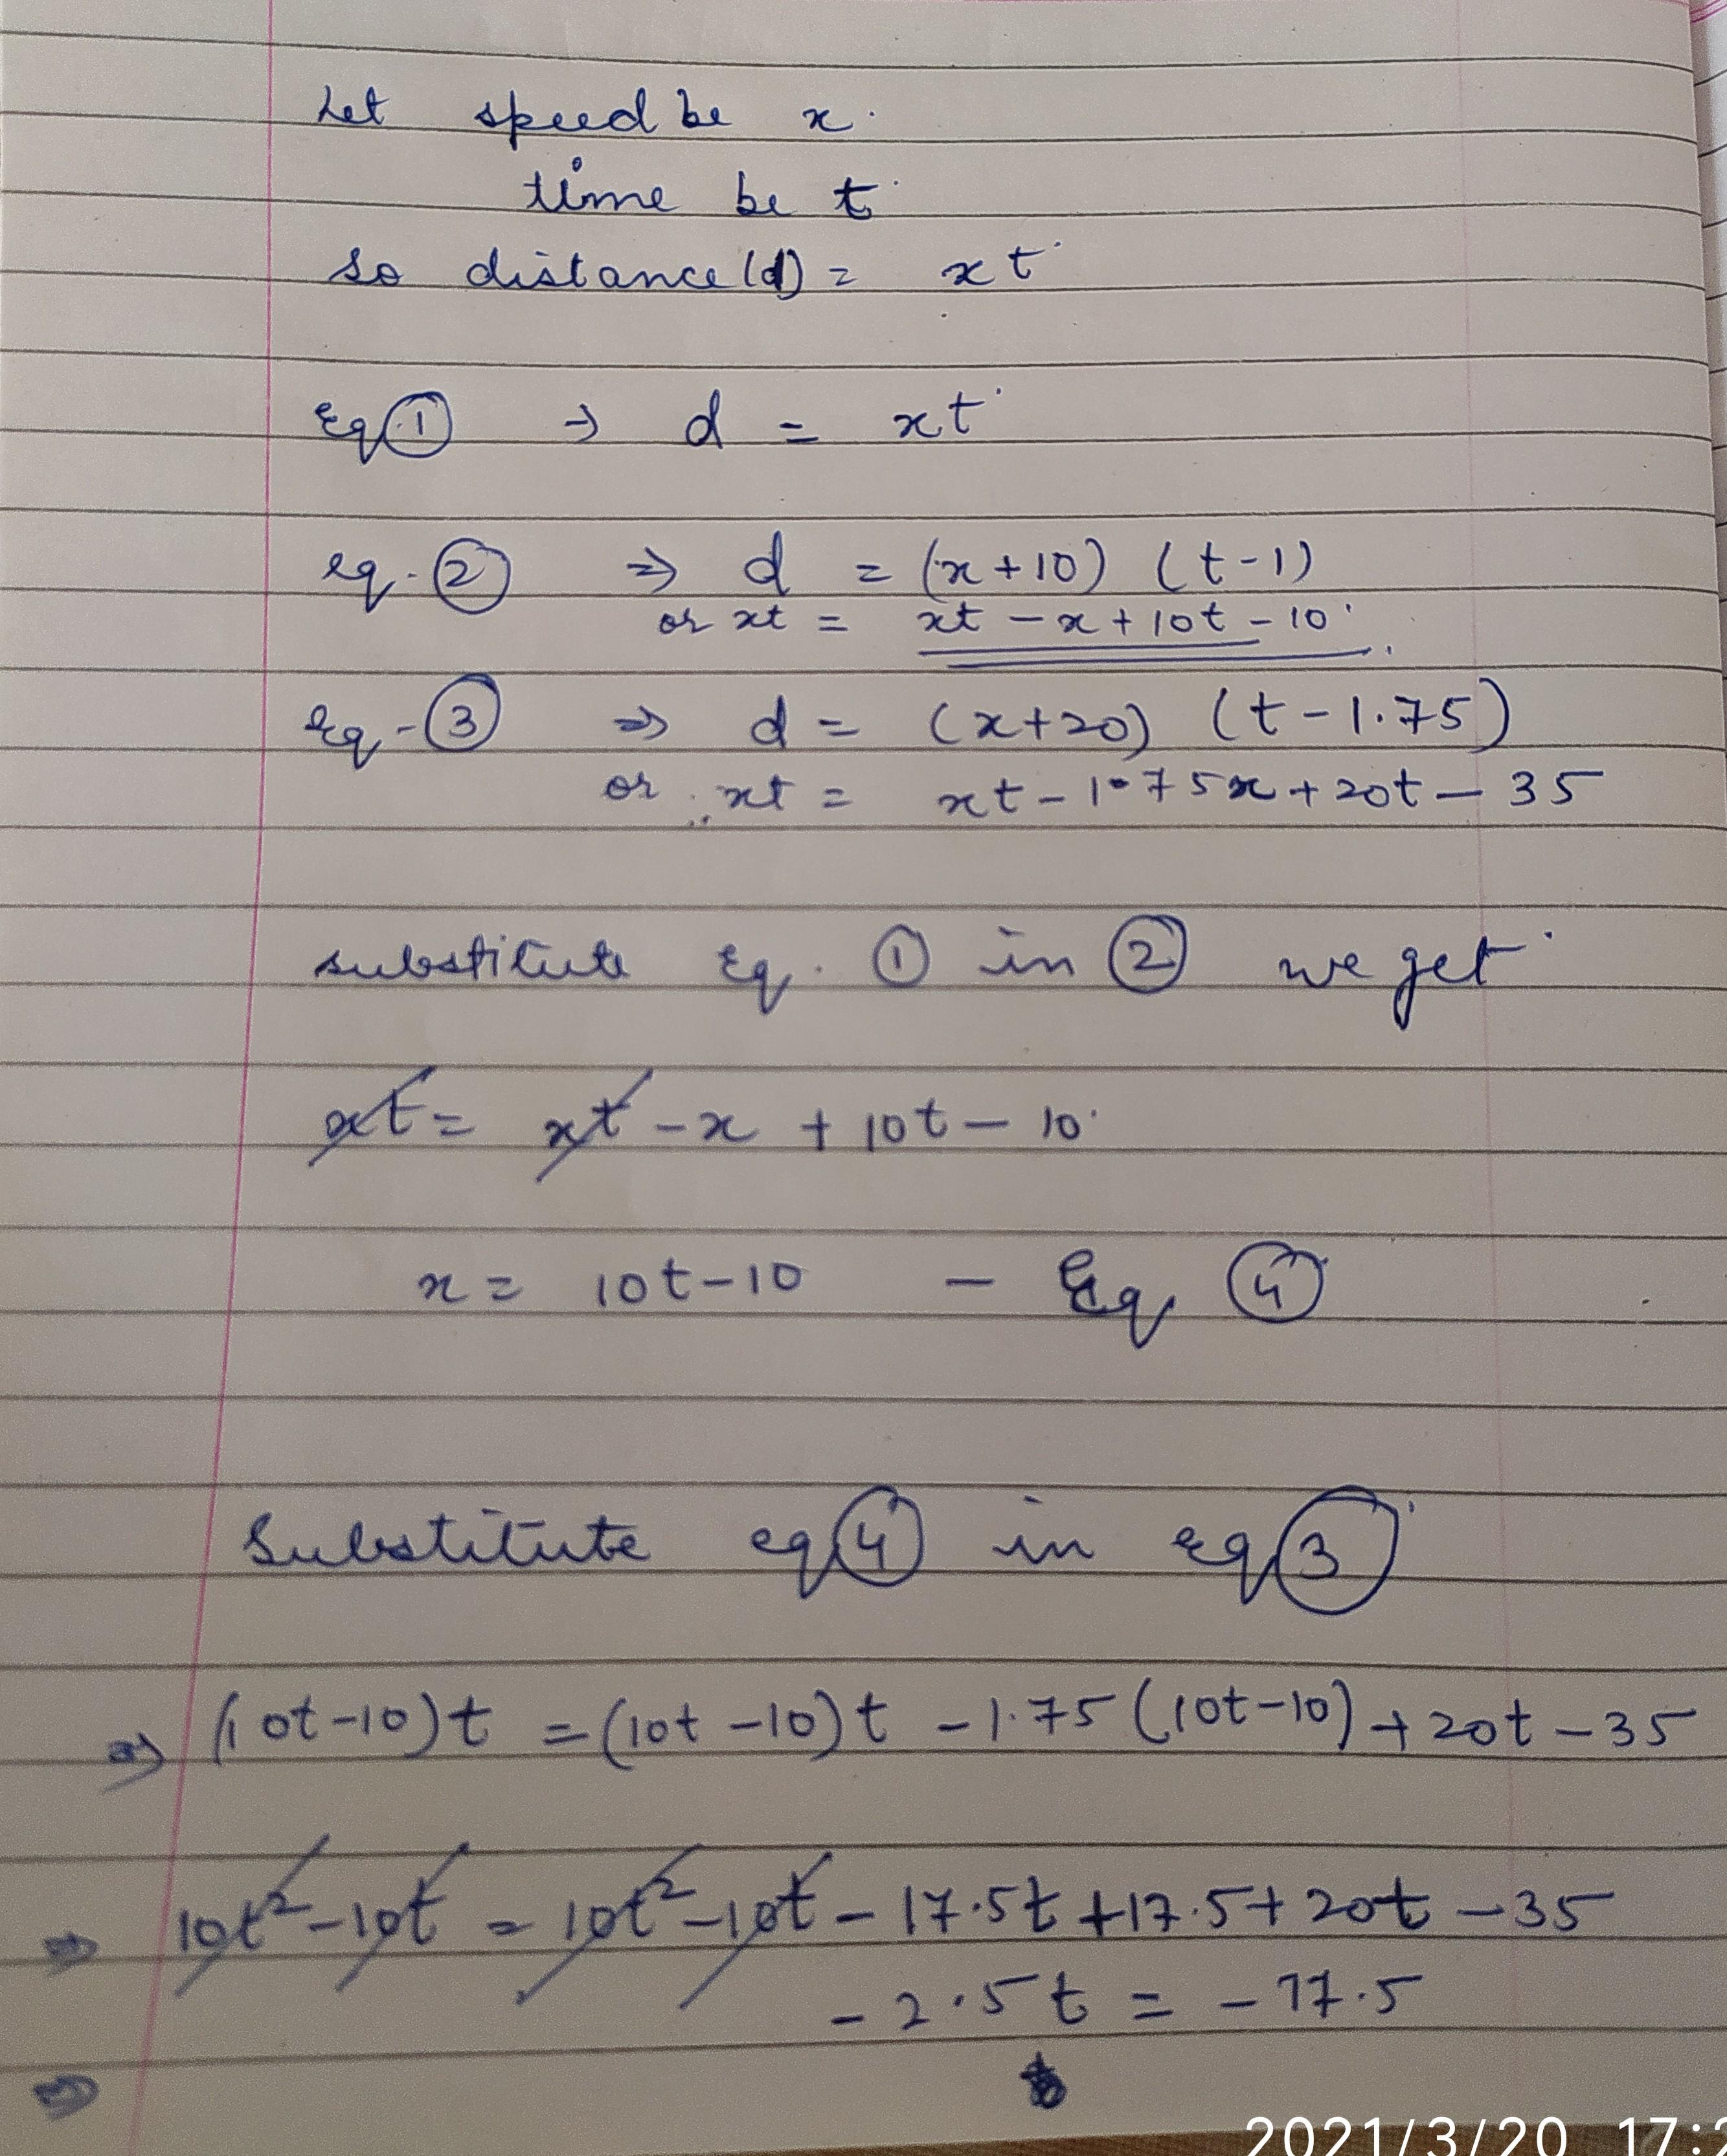 Let speed be x.
time be t
so distance (d) = xt
Eq ① → d = xt
eq. ② ⇒ d = (x+10) (t-1)
or xt = xt - x + 10t - 10
Eq - ③ ⇒ d = (x+20) (t-1.75)
or xt = xt - 1.75x + 20t - 35
substitute Eq. ① in ② we get
xt = xt - x + 10t - 10
x = 10t - 10 - Eq ④
Substitute eq ④ in eq ③
⇒ (10t-10)t = (10t-10)t - 1.75(10t-10) + 20t - 35
⇒ 10t² - 10t = 10t² - 10t - 17.5t + 17.5 + 20t - 35
- 2.5t = - 17.5
⇒
2021/3/20 17:2